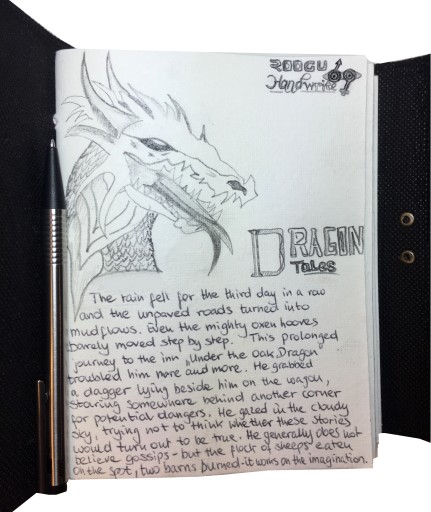 ROOGU
Handwrite
DRAGON
TALES
The rain fell for the third day in a row
and the unpaved roads turned into
mudflows. Even the mighty oxen hooves
barely moved step by step. This prolonged
journey to the inn „Under the Oak Dragon"
troubled him more and more. He grabbed
a dagger lying beside him on the wagon,
staring somewhere behind another corner
for potential dangers. He gazed in the cloudy
sky, trying not to think whether these stories
would turn out to be true. He generally does not
believe gossips - but the flock of sheeps eaten
on the spot, two barns burned - it works on the imagination.